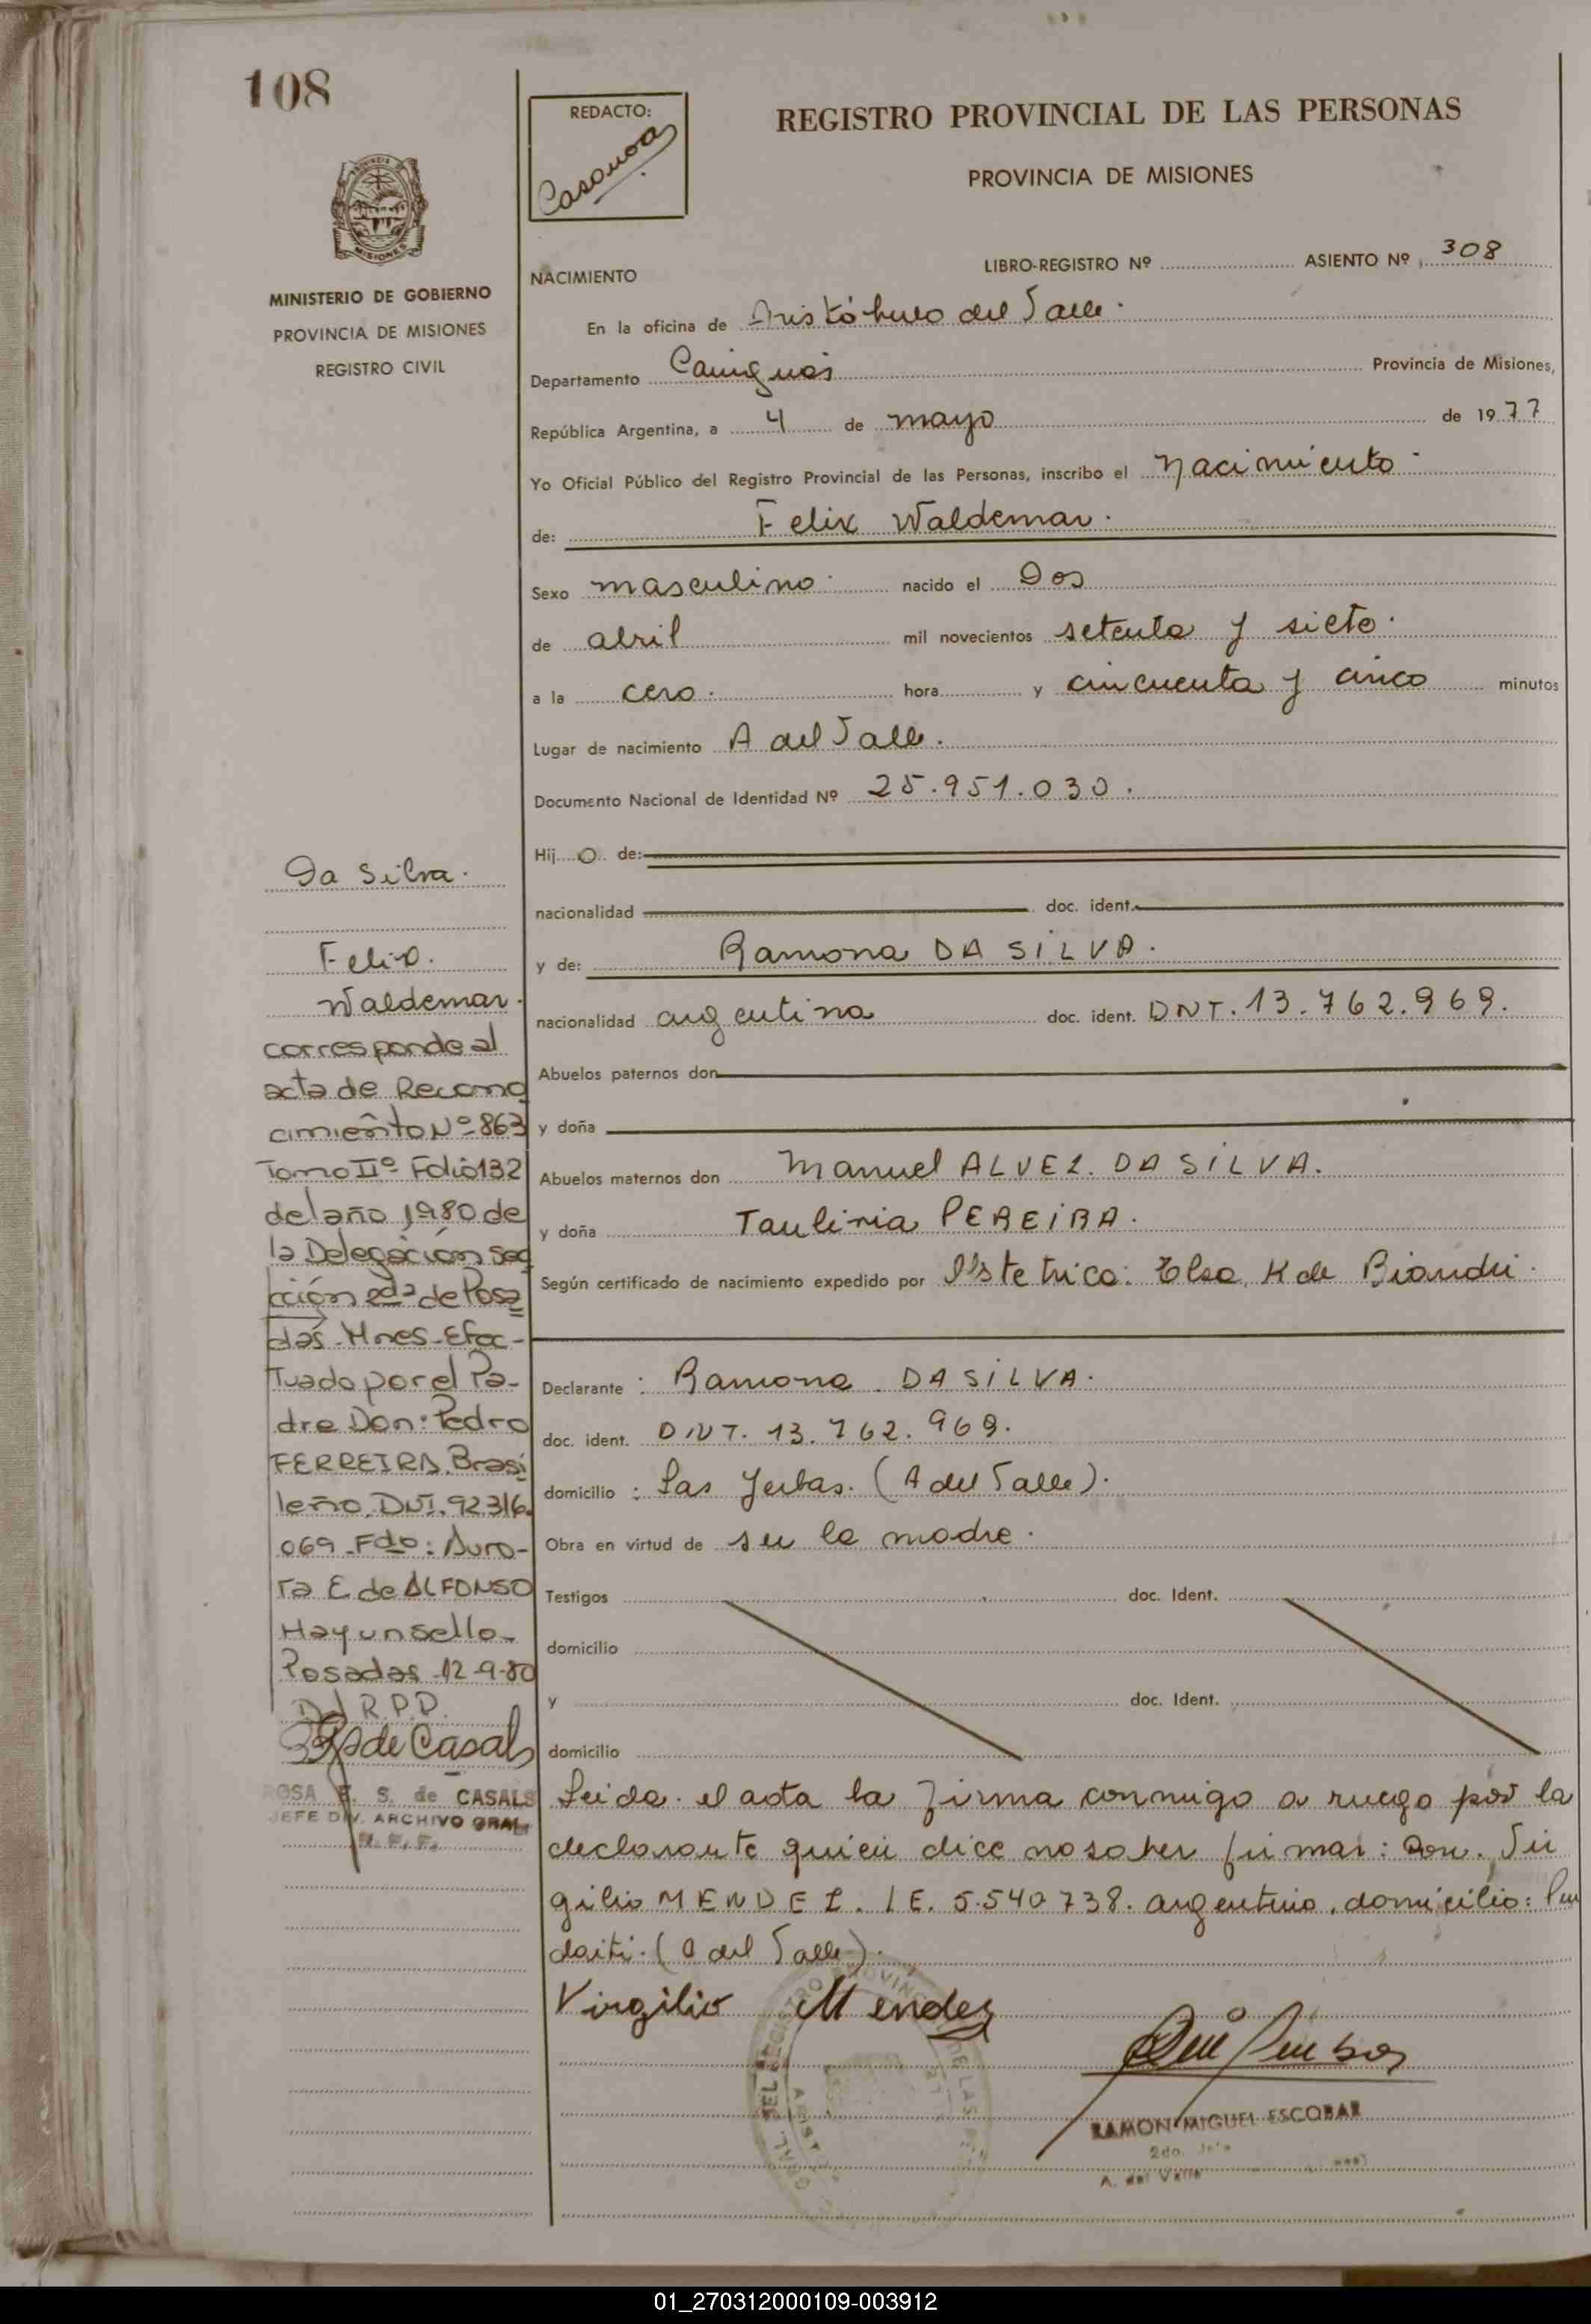 108
MINISTERIO DE GOBIERNO
PROVINCIA DE MISIONES
REGISTRO CIVIL
REDACTO:
Casanova
REGISTRO PROVINCIAL DE LAS PERSONAS
PROVINCIA DE MISIONES
NACIMIENTO
LIBRO-REGISTRO Nº ASIENTO Nº 308
En la oficina de Aristóbulo del Valle.
Departamento Cainguás Provincia de Misiones,
República Argentina, a 4 de mayo de 1977
Yo Oficial Público del Registro Provincial de las Personas, inscribo el nacimiento
de: Felix Waldemar.
Sexo masculino. nacido el Dos
de abril mil novecientos setenta y siete.
a la cero. hora y cincuenta y cinco minutos
Lugar de nacimiento A del Valle.
Documento Nacional de Identidad Nº 25.951.030.
Hij o de:
nacionalidad doc. ident.
y de: Ramona DA SILVA.
nacionalidad argentina doc. ident. DNI. 13.762.969.
Abuelos paternos don
y doña
Abuelos maternos don Manuel ALVEZ. DA SILVA.
y doña Paulinia PEREIRA.
Según certificado de nacimiento expedido por Obstetrica: Elsa K de
Declarante: Ramona DA SILVA.
doc. ident. DNI. 13.762.969.
domicilio: Las Yerbas. (A del Valle).
Obra en virtud de ser la madre.
Testigos doc. Ident.
domicilio
y doc. Ident.
domicilio
Leida el acta la firma conmigo a ruego por la
declarante quien dice no saber firmar: Don. Vir
gilio MENDEZ. LE. 5.540738. argentino, domicilio: Pin
daiti. (A del Valle).
Virgilio Mendez
RAMON MIGUEL ESCOBAR
2do. Jefe
A. del Valle
Da Silva.
Felix.
Waldemar.
corresponde al
acta de Recono
cimiento Nº 863
Tomo IIº Folio 132
del año 1980 de
la Delegación Sec
ción 2da de Posa
das-Mnes-Efec-
tuado por el Pa-
dre Don: Pedro
FERREIRA. Brasi
leño. DNI. 92.316.
069. Fdo: Auro-
ra E. de ALFONSO
Hay un sello-
Posadas 12-9-80
R.P.P.
de Casals
ROSA E. S. de CASALS
JEFE DIV. ARCHIVO GRAL.
01_270312000109-003912